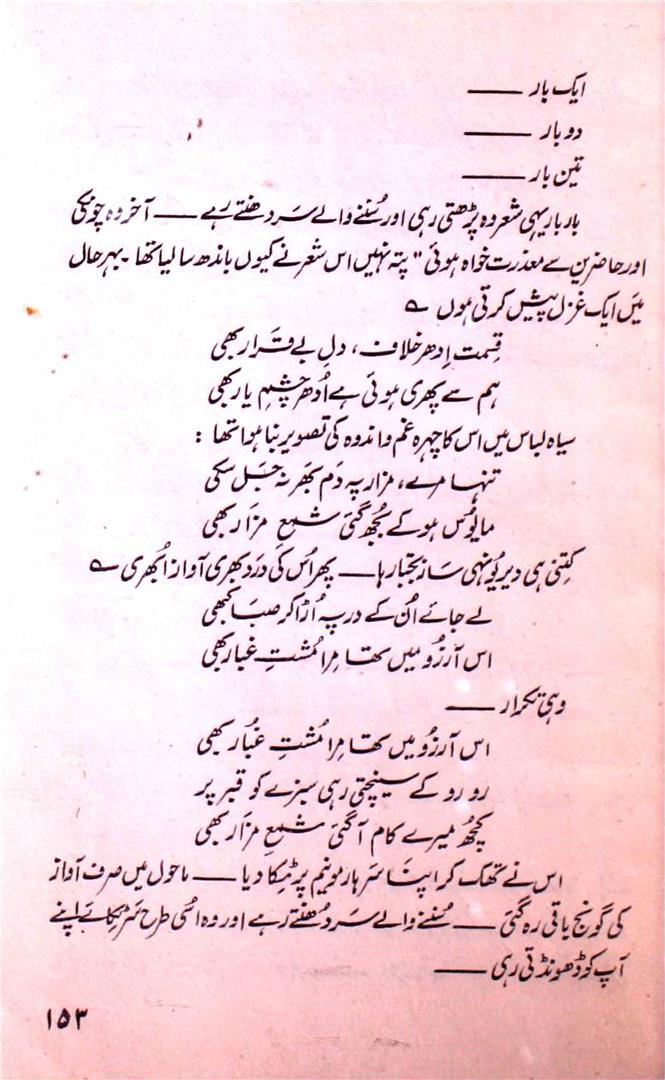 ایک بار ——
دو بار ——
تین بار ——
بار بار یہی شعر وہ پڑھتی رہی اور سُننے والے سَر دھنتے رہے —— آخر وہ چونکی
اور حاضرین سے معذرت خواہ ہوئی " پتہ نہیں اس شعر نے کیوں باندھ سا لیا تھا ۔ بہر حال
میں ایک غزل پیش کرتی ہوں ؎
قِسمت اِدھر خلاف ، دلِ بے قرار بھی
ہم سے پھری ہوئی ہے اُدھر چشمِ یار بھی
سیاہ لباس میں اس کا چہرہ غم و اندوہ کی تصویر بنا ہوا تھا :
تنہا مرے ، مزار پہ دَم بھر نہ جَل سکی
مایُوس ہو کے بُجھ گئی شمعِ مزار بھی
کِتنی ہی دیر یُونہی ساز بجتا رہا —— پھر اُس کی درد بھری آواز اُبھری ؎
لے جائے اُن کے در پہ اُڑا کر صبا کبھی
اس آرزُو میں تھا مِرا مُشتِ غبار بھی
وہی تکرار ——
اس آرزُو میں تھا مِرا مُشتِ غبُار بھی
رو رو کے سینچتی رہی سبزے کو قبر پر
کچُھ میرے کام آ گئی شمعِ مزار بھی
اس نے تھک کر اپنا سَر ہارمونیم پر ٹِکا دیا —— ماحول میں صرف آواز
کی گونج باقی رہ گئی —— سُننے والے سَر دُھنتے رہے اور وہ اُسی طرح سَر جُھکائے اپنے
آپ کو ڈھونڈتی رہی ——
۱۵۳